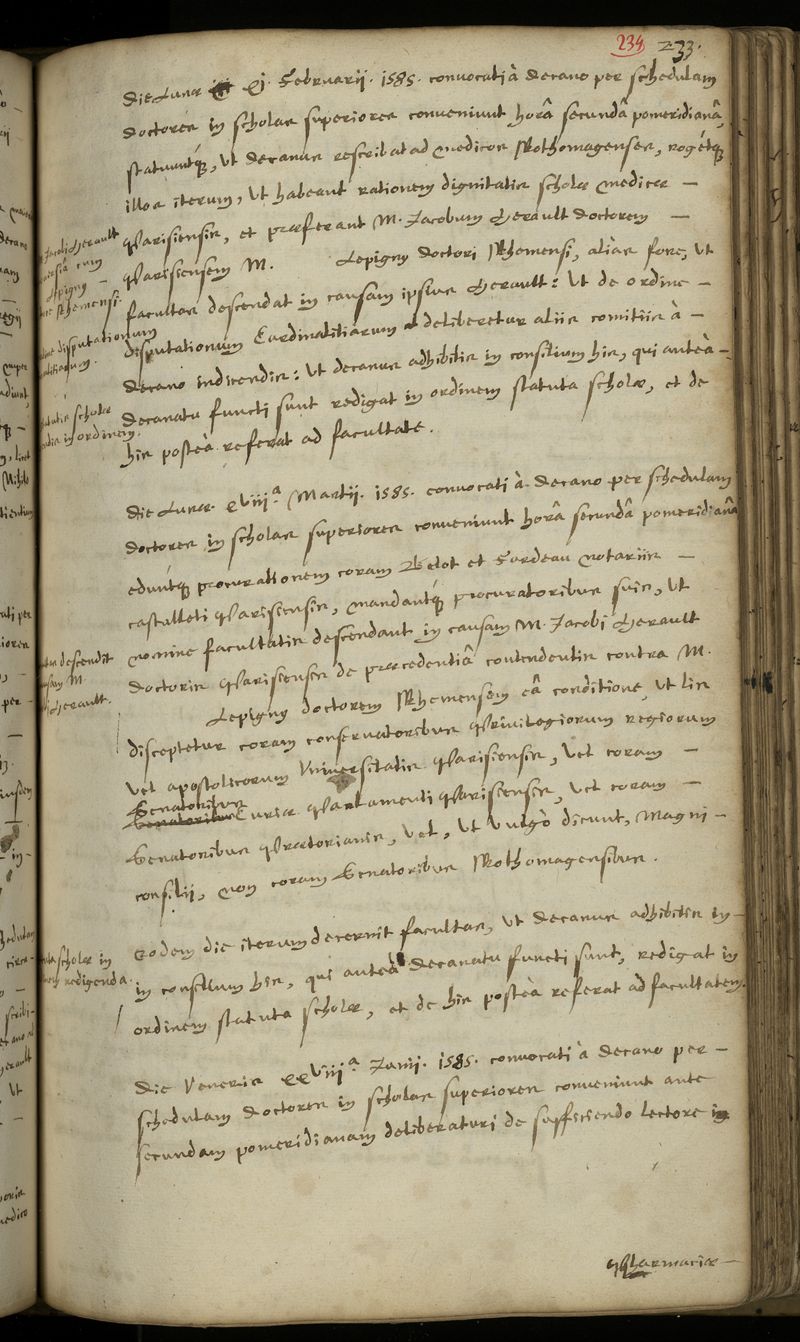 234 233.
Die Lunæ xj. Februarij. 1585. convocati à decano per schedulam
doctores in scholas superiores conveniunt horâ secundâ pomeridianâ,
statuuntque, ut decanus rescribat ad Medicos Rothomagenses, rogetque
illos iterum, ut habeant rationem dignitatis scholæ Medicæ –
Parisiensis, et præferant M. Jacobum Herault doctorem –
Parisiensem M. Lepigny doctori Rhemensi, alias fore, ut
facultas descendat in causam ipsius Herault: Ut de ordine –
disputationum Cardinalitiarum deliberetur aliis comitiis à –
decano indicendis: Ut decanus adhibitis in consilium his, qui anteà –
decanatu functi sunt redigat in ordinem statuta scholæ, et de
his posteà referat ad facultatē.
Jacobi Herault
causa cum
Lepigny –
Rhemensi.
disputationum
scholæ
in ordinem.
Die Lunæ. xviijª. Martij. 1585. convocati à decano per schedulam
doctores in scholas superiores conveniunt horâ secundâ pomeridianâ
eduntque procurationem coram Belot et Fardeau Notariis –
castelleti Parisiensis, mandantque procuratoribus suis, ut
nomine facultatis descendant in causam M. Jacobi Herault
doctoris Parisiensis de præcedentiâ contendentis contra M.
Lepigny doctorem Rhemensem eâ conditione, ut lis
disceptetur coram conservatoribus Privilegiorum regiorum
vel apostolicorum Universitatis Parisiensis, vel coram –
Senatoribus Curiæ Parlamenti Parisiensis, vel coram –
Senatoribus Prætorianis, vel, ut vulgò dicunt, Magni –
consilij, non coram Senatoribus Rothomagensibus.
descendit
causam M.
Herault.
Eodem die iterum decernit facultas, ut decanus adhibitis in –
in consilium his, qui anteà decanatu functi sunt, redigat in
ordinem statuta scholæ, et de his posteà referat ad facultatem.
scholæ in
redigenda.
Die Veneris xxviijª Junij. 1585. convocati à decano per –
schedulam doctores in scholas superiores conveniunt ante
secundam pomeridianam deliberaturi de sufficiendo lectore in
Pharmaciæ –